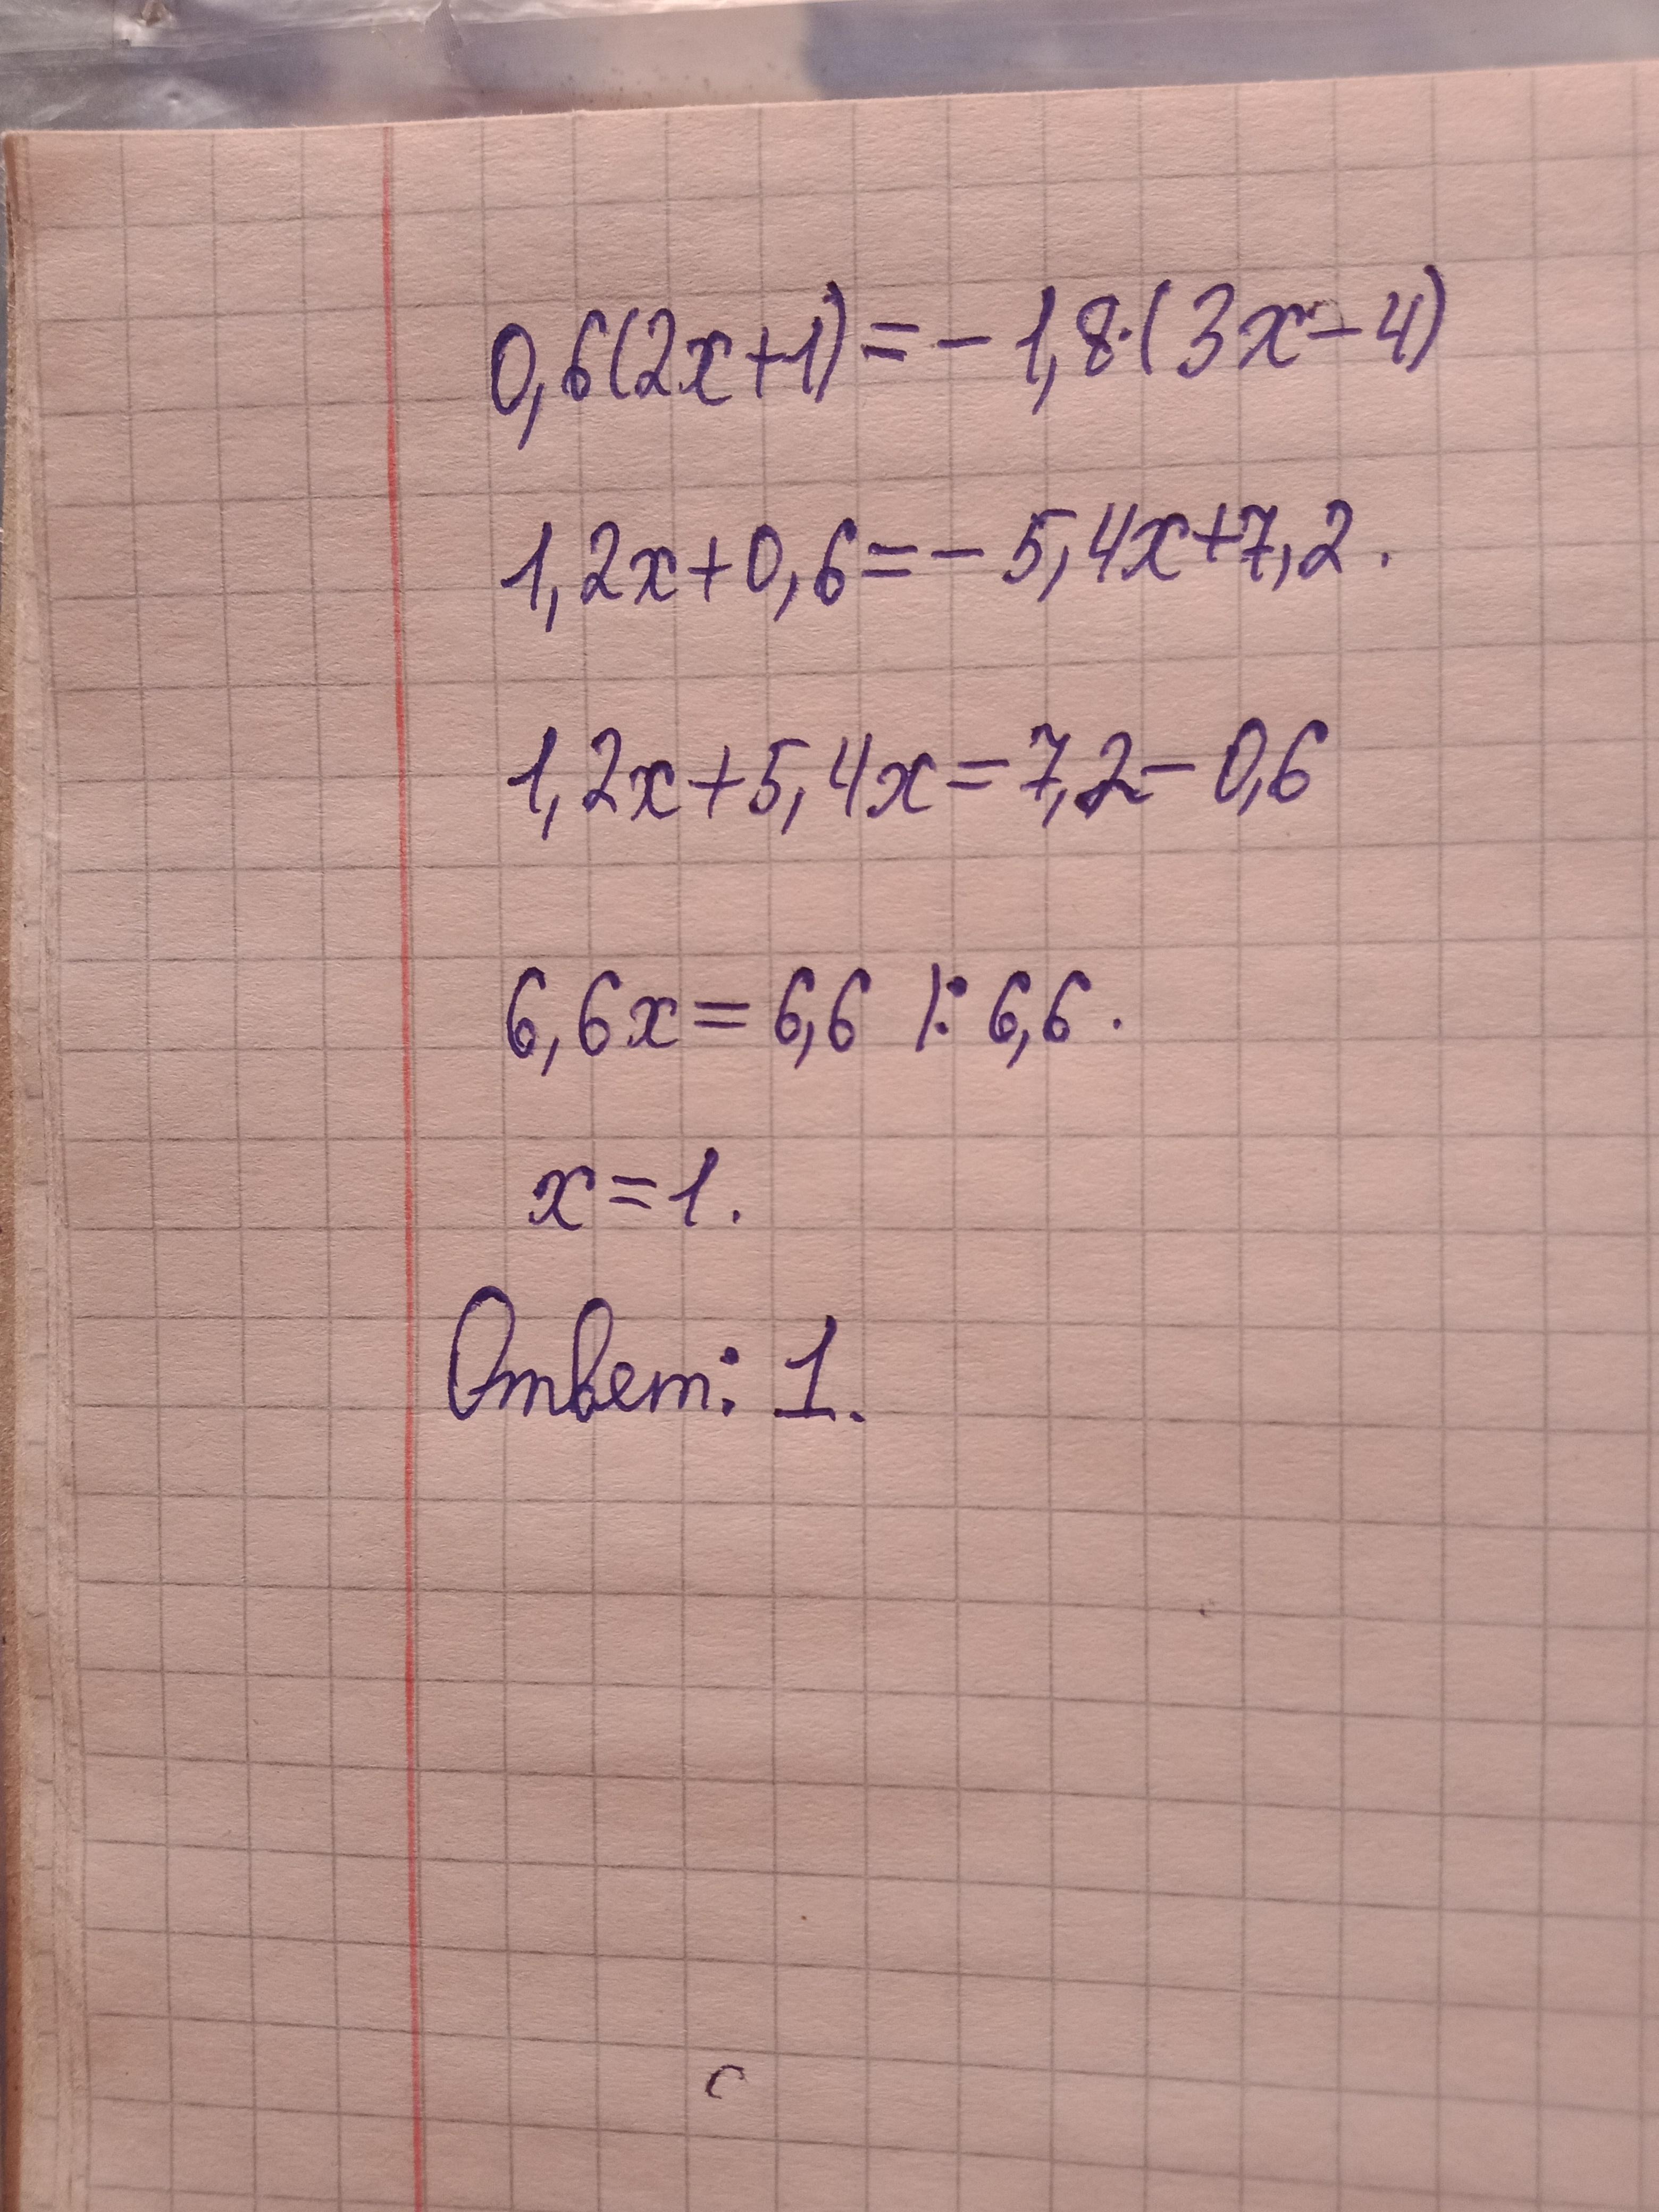 0,6(2x+1)=-1,8·(3x-4)
1,2x+0,6=-5,4x+7,2.
1,2x+5,4x=7,2-0,6
6,6x=6,6 |:6,6.
x=1.
Ответ: 1.